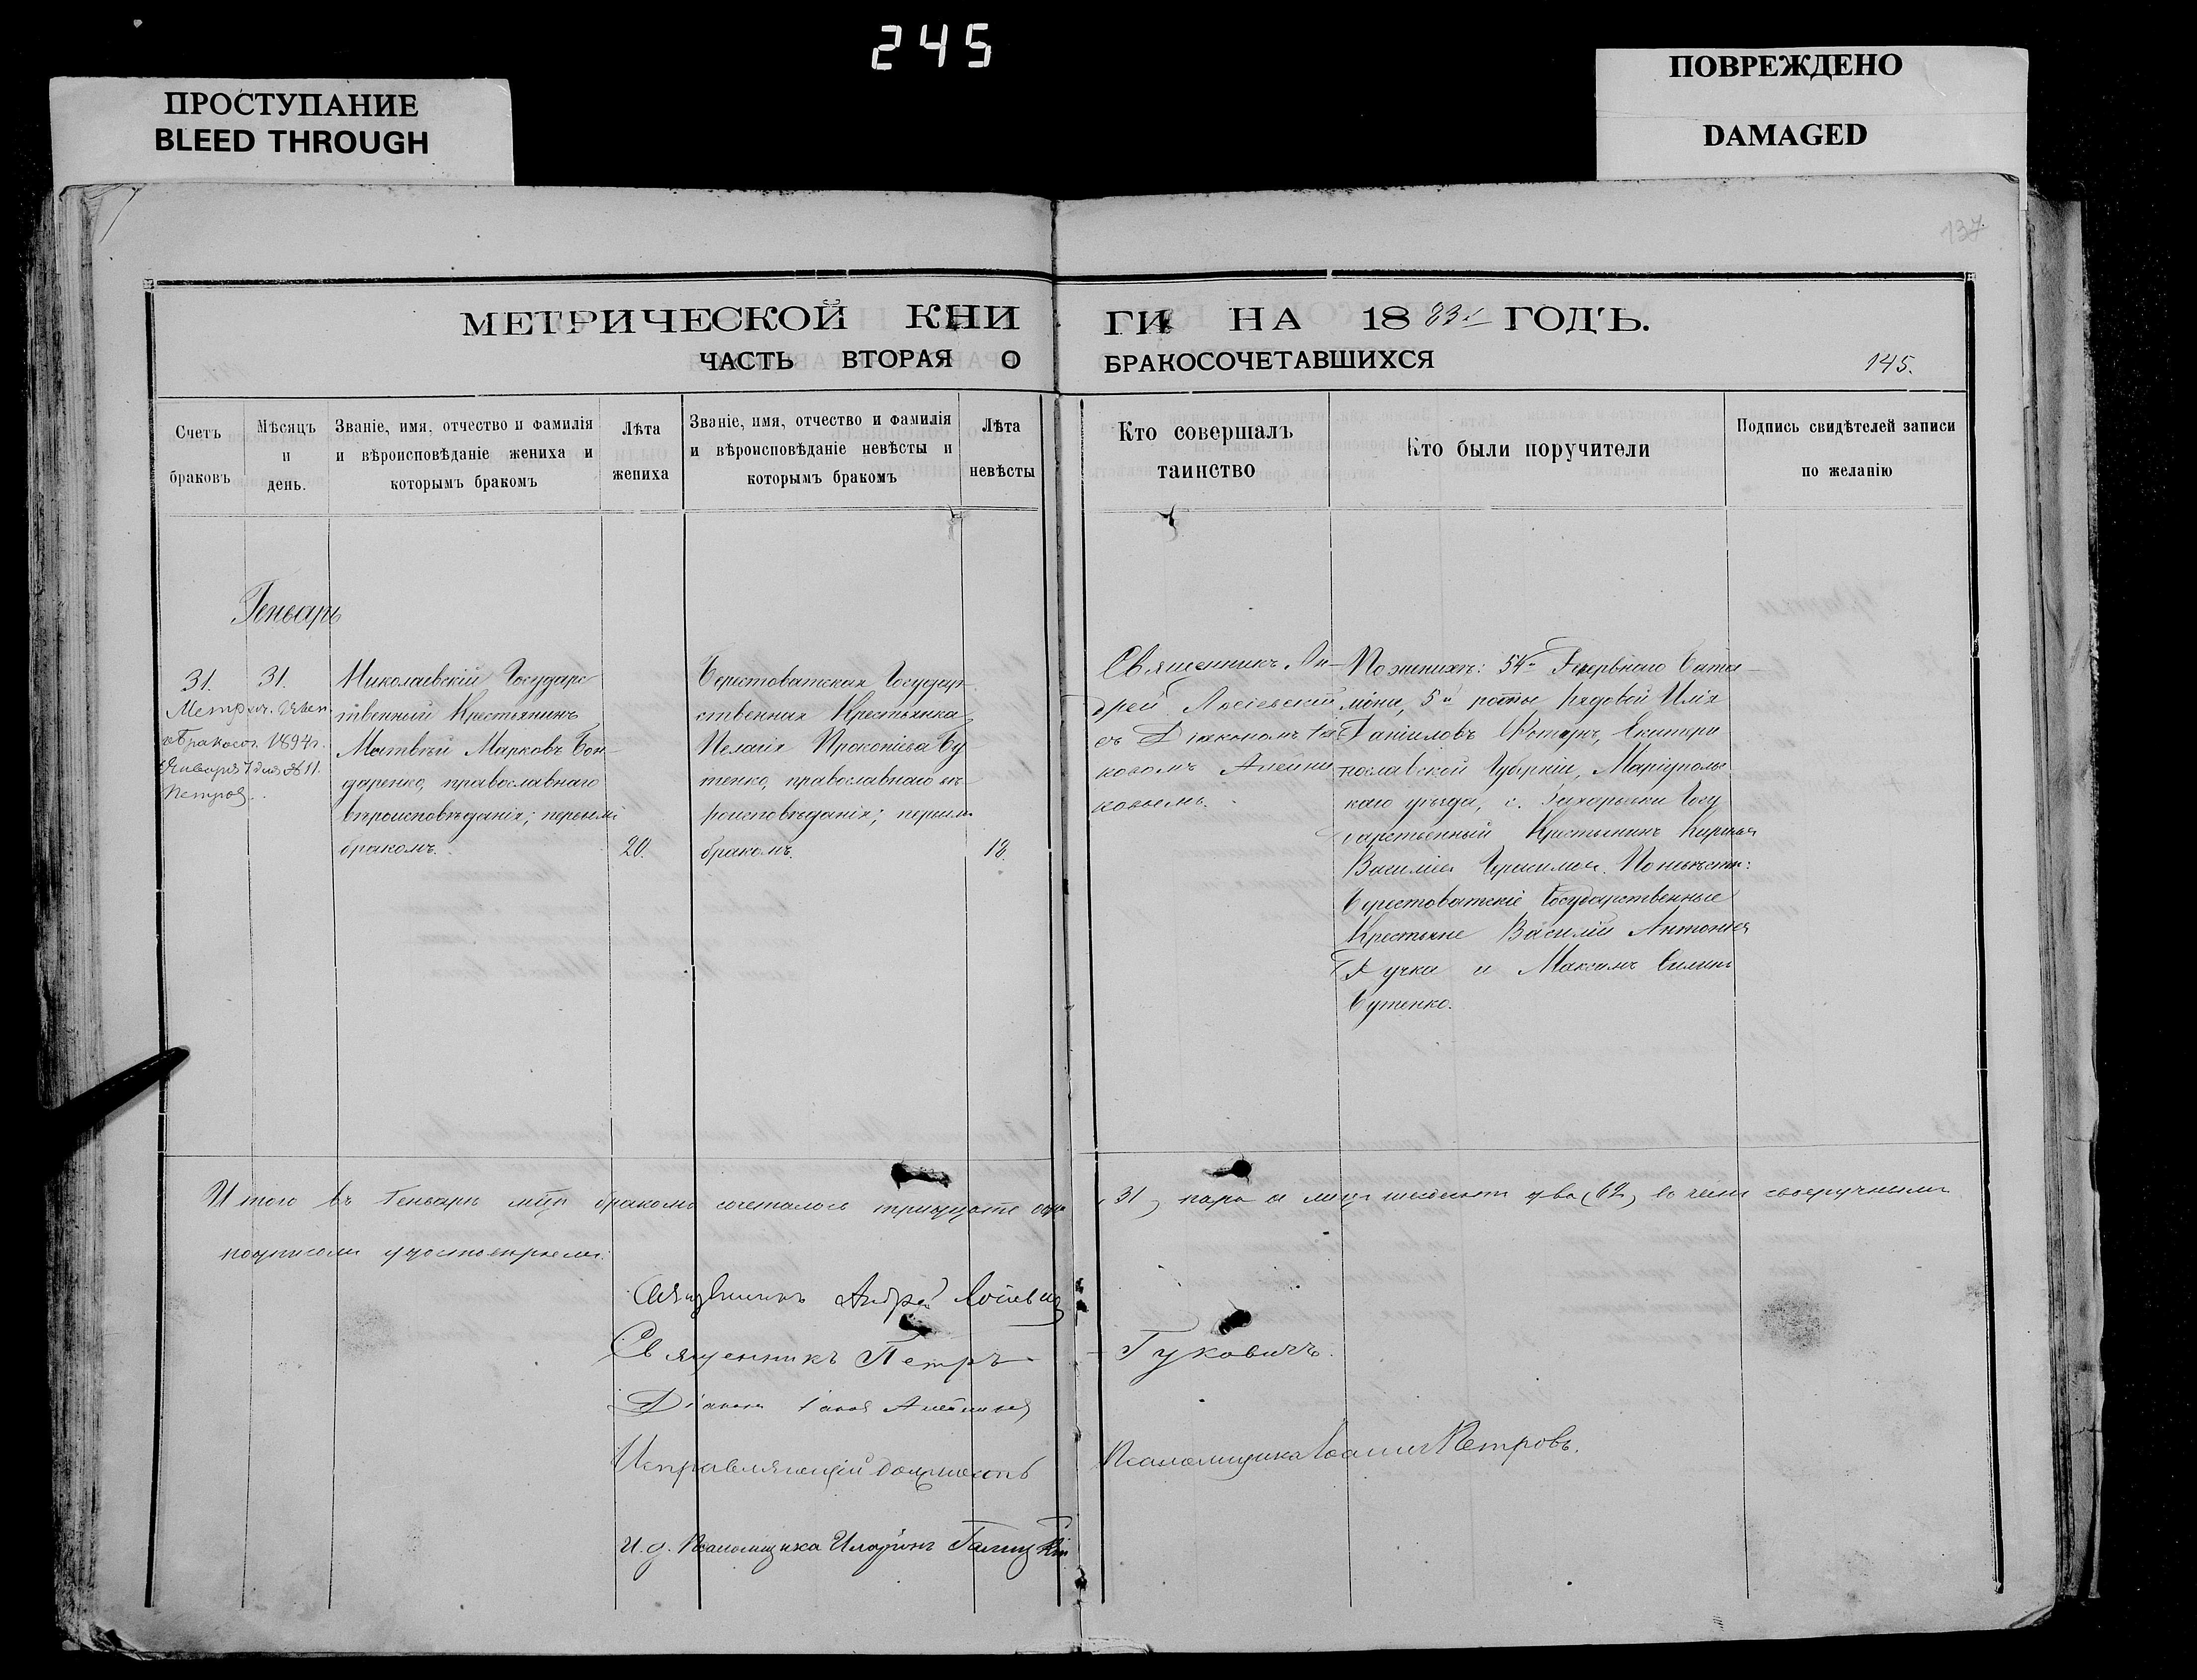 245
ПРОСТУПАНИЕ
BLEED THROUGH
ПОВРЕЖДЕНО
DAMAGED
137
МЕТРИЧЕСКОЙ КНИ
ГИ НА 1883 ГОДЪ.
ЧАСТЬ ВТОРАЯ О
БРАКОСОЧЕТАВШИХСЯ
145.
Счетъ
браковъ
Мѣсяцъ
и
день.
Званіе, имя, отчество и фамилія
и вѣроисповѣданіе жениха и
которымъ бракомъ
Лѣта
жениха
Званіе, имя, отчество и фамилія
и вѣроисповѣданіе невѣсты и
которымъ бракомъ
Лѣта
невѣсты
Кто совершалъ
таинство
Кто были поручители
Подпись свидѣтелей записи
по желанію
Геньварь
31.
Метрич.
о бракосоч. 1894 г.
Января 7 дня № 11.
Петровъ.
31.
Николаевскій Государс
твенный Крестьянинъ
Матвѣй Марковъ Бон-
даренко, православнаго
вѣроисповѣданія; первымъ
бракомъ.
20.
Берестоватская Государ
ственная Крестьянка
Пелагія Прокопіева Бу
тенко, православнаго вѣ
роисповѣданія; первымъ
бракомъ.
18.
Священникъ Ан-
дрей
съ Діакономъ Іа
ковомъ Алейни
ковымъ.
По женихѣ: 54го Резервнаго Бата
ліона, 5й роты рядовой Илія
Даніиловъ Екатери
нославской Губерніи, Маріуполь
каго уѣзда, с. Захарьевки Госу
дарственный Крестьянинъ Кирилъ
Василіевъ Герасименко. По невѣстѣ:
Берестоватскіе Государственные
Крестьяне Василій Антоніевъ
Гучка и Максимъ
Бутенко.
Итого въ Геньварѣ мцѣ бракомъ сочеталось тридцать одна
(31) пара а лицъ шестьдесятъ два (62), въ чемъ своеручными
подписами удостовѣряемъ.
Священникъ Андрей
Священникъ Петръ
Гуковичъ.
Діаконъ Іаковъ Алейниковъ
Исправляющій Должность
Псаломщика Іоаннъ Петровъ.
И. д. Псаломщика Иларіонъ Галицкій